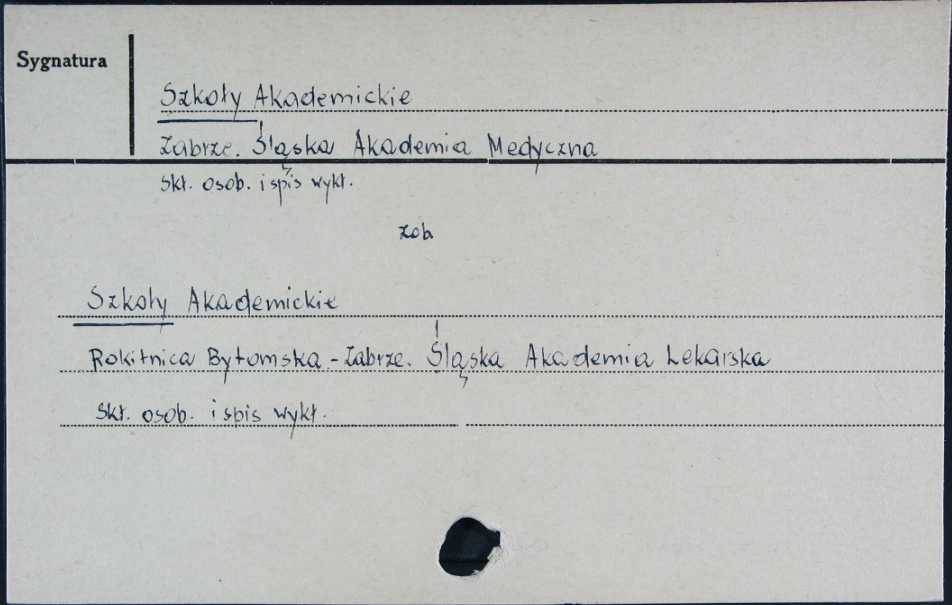 Sygnatura
Szkoły Akademickie
Zabrze. Śląska Akademia Medyczna
Skł. osob. i spis wykł.
zob
Szkoły Akademickie
Rokitnica Bytomska - Zabrze. Śląska Akademia Lekarska
Skł. osob. i spis wykł.